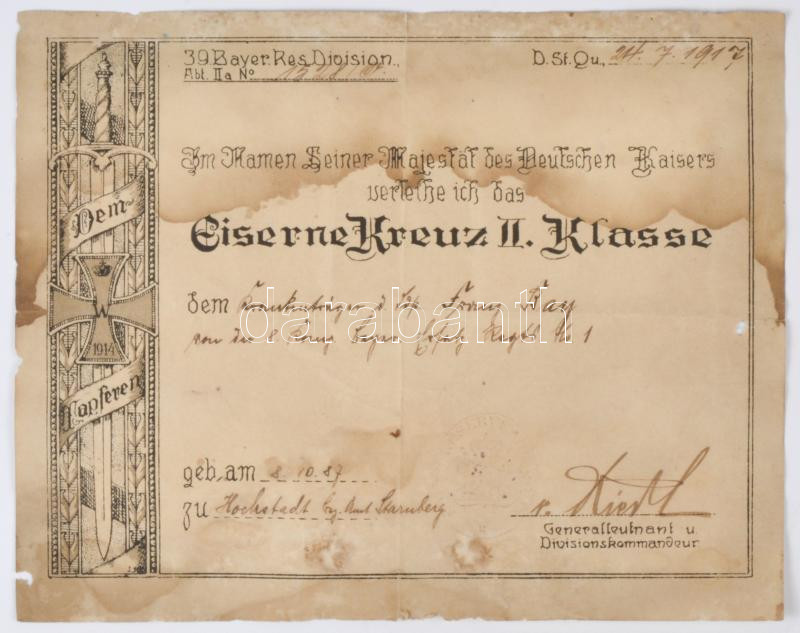 39. Bayer. Res. Division.
D. St. Qu., 24. 7. 1917
Abt. IIa No
Im Namen Seiner Majestät des Deutschen Kaisers
verleihe ich das
Eiserne Kreuz II. Klasse
dem Krankenträger d. Franz Bay
von der 8. Komp. Bayer. Regts. 1
geb. am 8. 10. 87
zu Hochstadt Bz. Amt Starnberg
v. Riedl
Generalleutnant u.
Divisionskommandeur
Dem
W
1914
Tapferen
darabanth